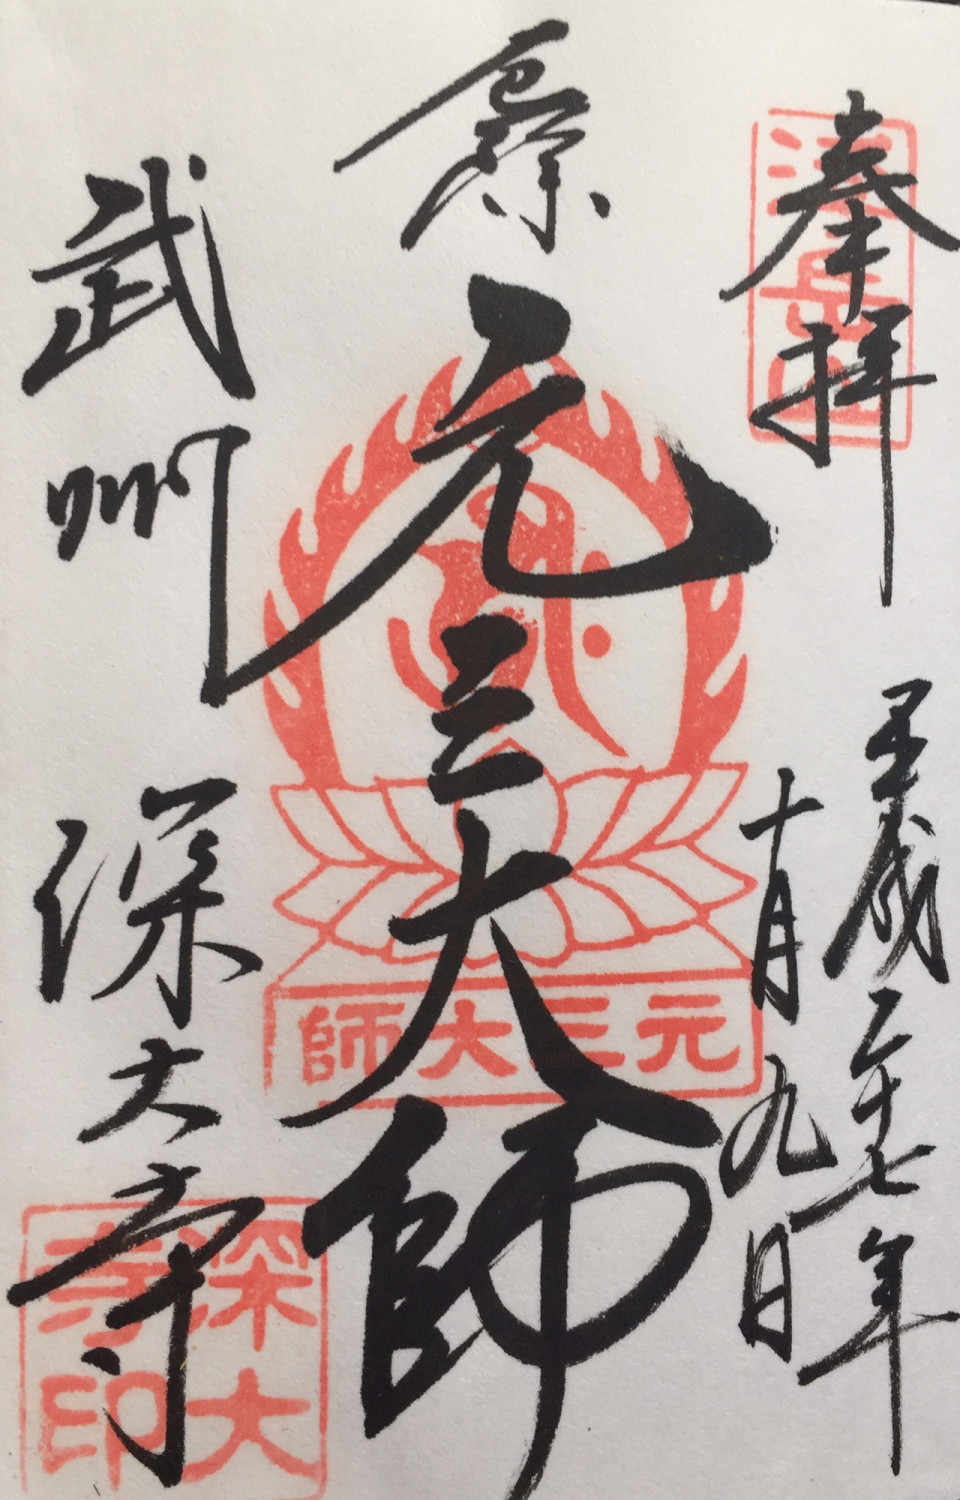 奉拝
浮岳山
平成二十七年
十月九日
厄除
元三大師
元三大師
武州
深大寺
深大寺印